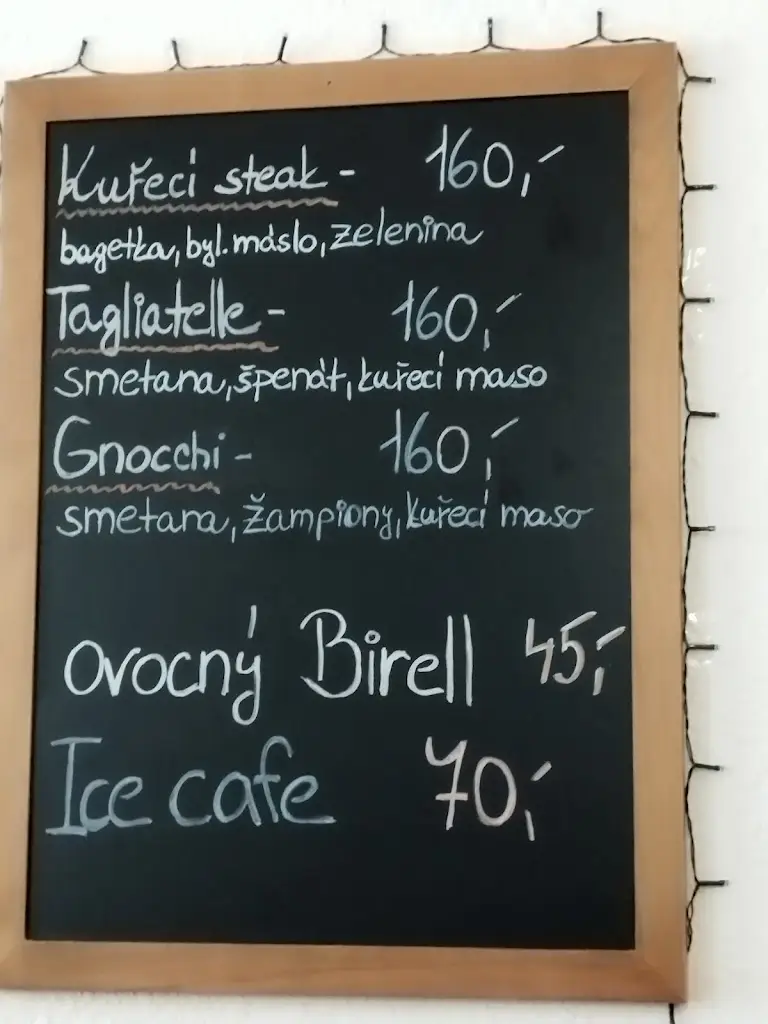 Kuřecí steak - 160,-
bagetka, byl. máslo, zelenina
Tagliatelle - 160,-
smetana, špenát, kuřecí maso
Gnocchi - 160,-
smetana, žampiony, kuřecí maso
Ovocný Birell 45,-
Ice cafe 70,-